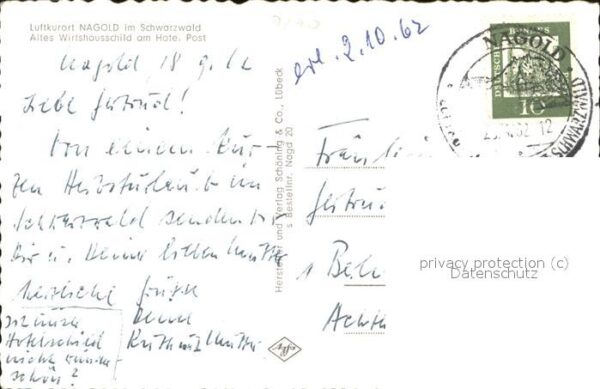 Luftkurort NAGOLD im Schwarzwald
Altes Wirtshausschild am Hote. Post
Nagold, 18 9. 62
Liebe Gertrud!
Von einem kur-
zen Herbsturlaub im
Schwarzwald senden wir
Dir u. Deiner lieben Mutter
herzliche Grüße
Deine
Ruth u. Mutter
Ist unser
Hotelschild
nicht wunder-
schön?
Hersteller und Verlag Schöning & Co., Lübeck
s Bestellnr. Nagd 20
Agfa
erl. 2.10.62
NAGOLD
SCHWARZWALD
DEUTSCHE BUNDESPOST
10
62 12
Fräulein
Gertru
1 Beh
Acht
privacy protection (c)
Datenschutz